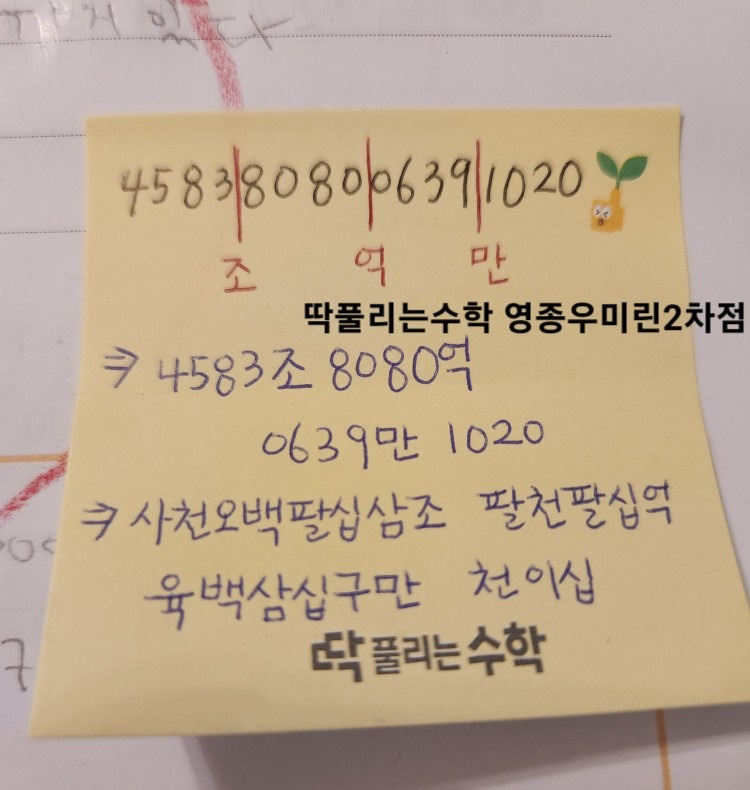 있다
4583|8080|0639|1020
조 억 만
딱풀리는수학 영종우미린2차점
⇒ 4583조 8080억
0639만 1020
⇒ 사천오백팔십삼조 팔천팔십억
육백삼십구만 천이십
딱풀리는수학
7